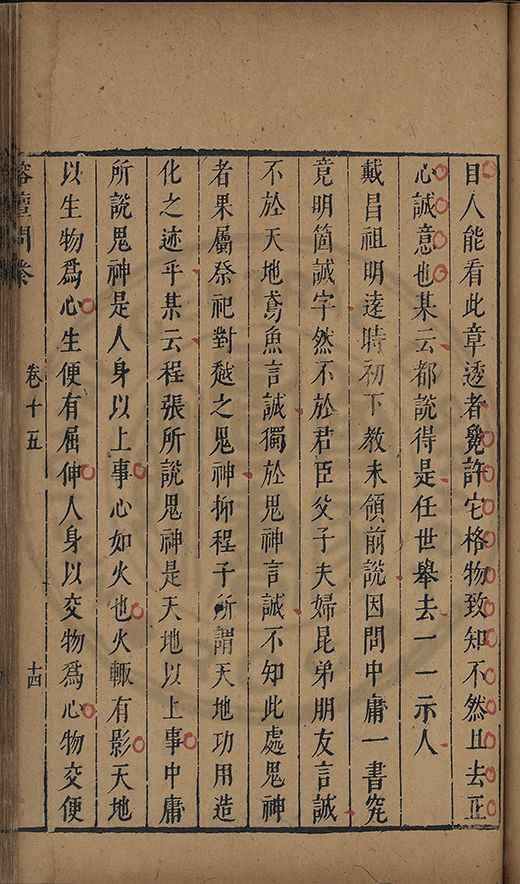 目人能看此章透者纔許它格物致知不然且去正
心誠意也某云都說得是任世舉去一一示人
戴昌祖明逵時初下教未領前說因問中庸一書究
竟明箇誠字然不於君臣父子夫婦昆弟朋友言誠
不於天地鳶魚言誠獨於鬼神言誠不知此處鬼神
者果屬祭祀對越之鬼神抑程子所謂天地功用造
化之迹乎某云程張所說鬼神是天地以上事中庸
所說鬼神是人身以上事心如火也火輙有影天地
以生物爲心生便有屈伸人身以交物爲心物交便
榕壇問業
卷十五
十四